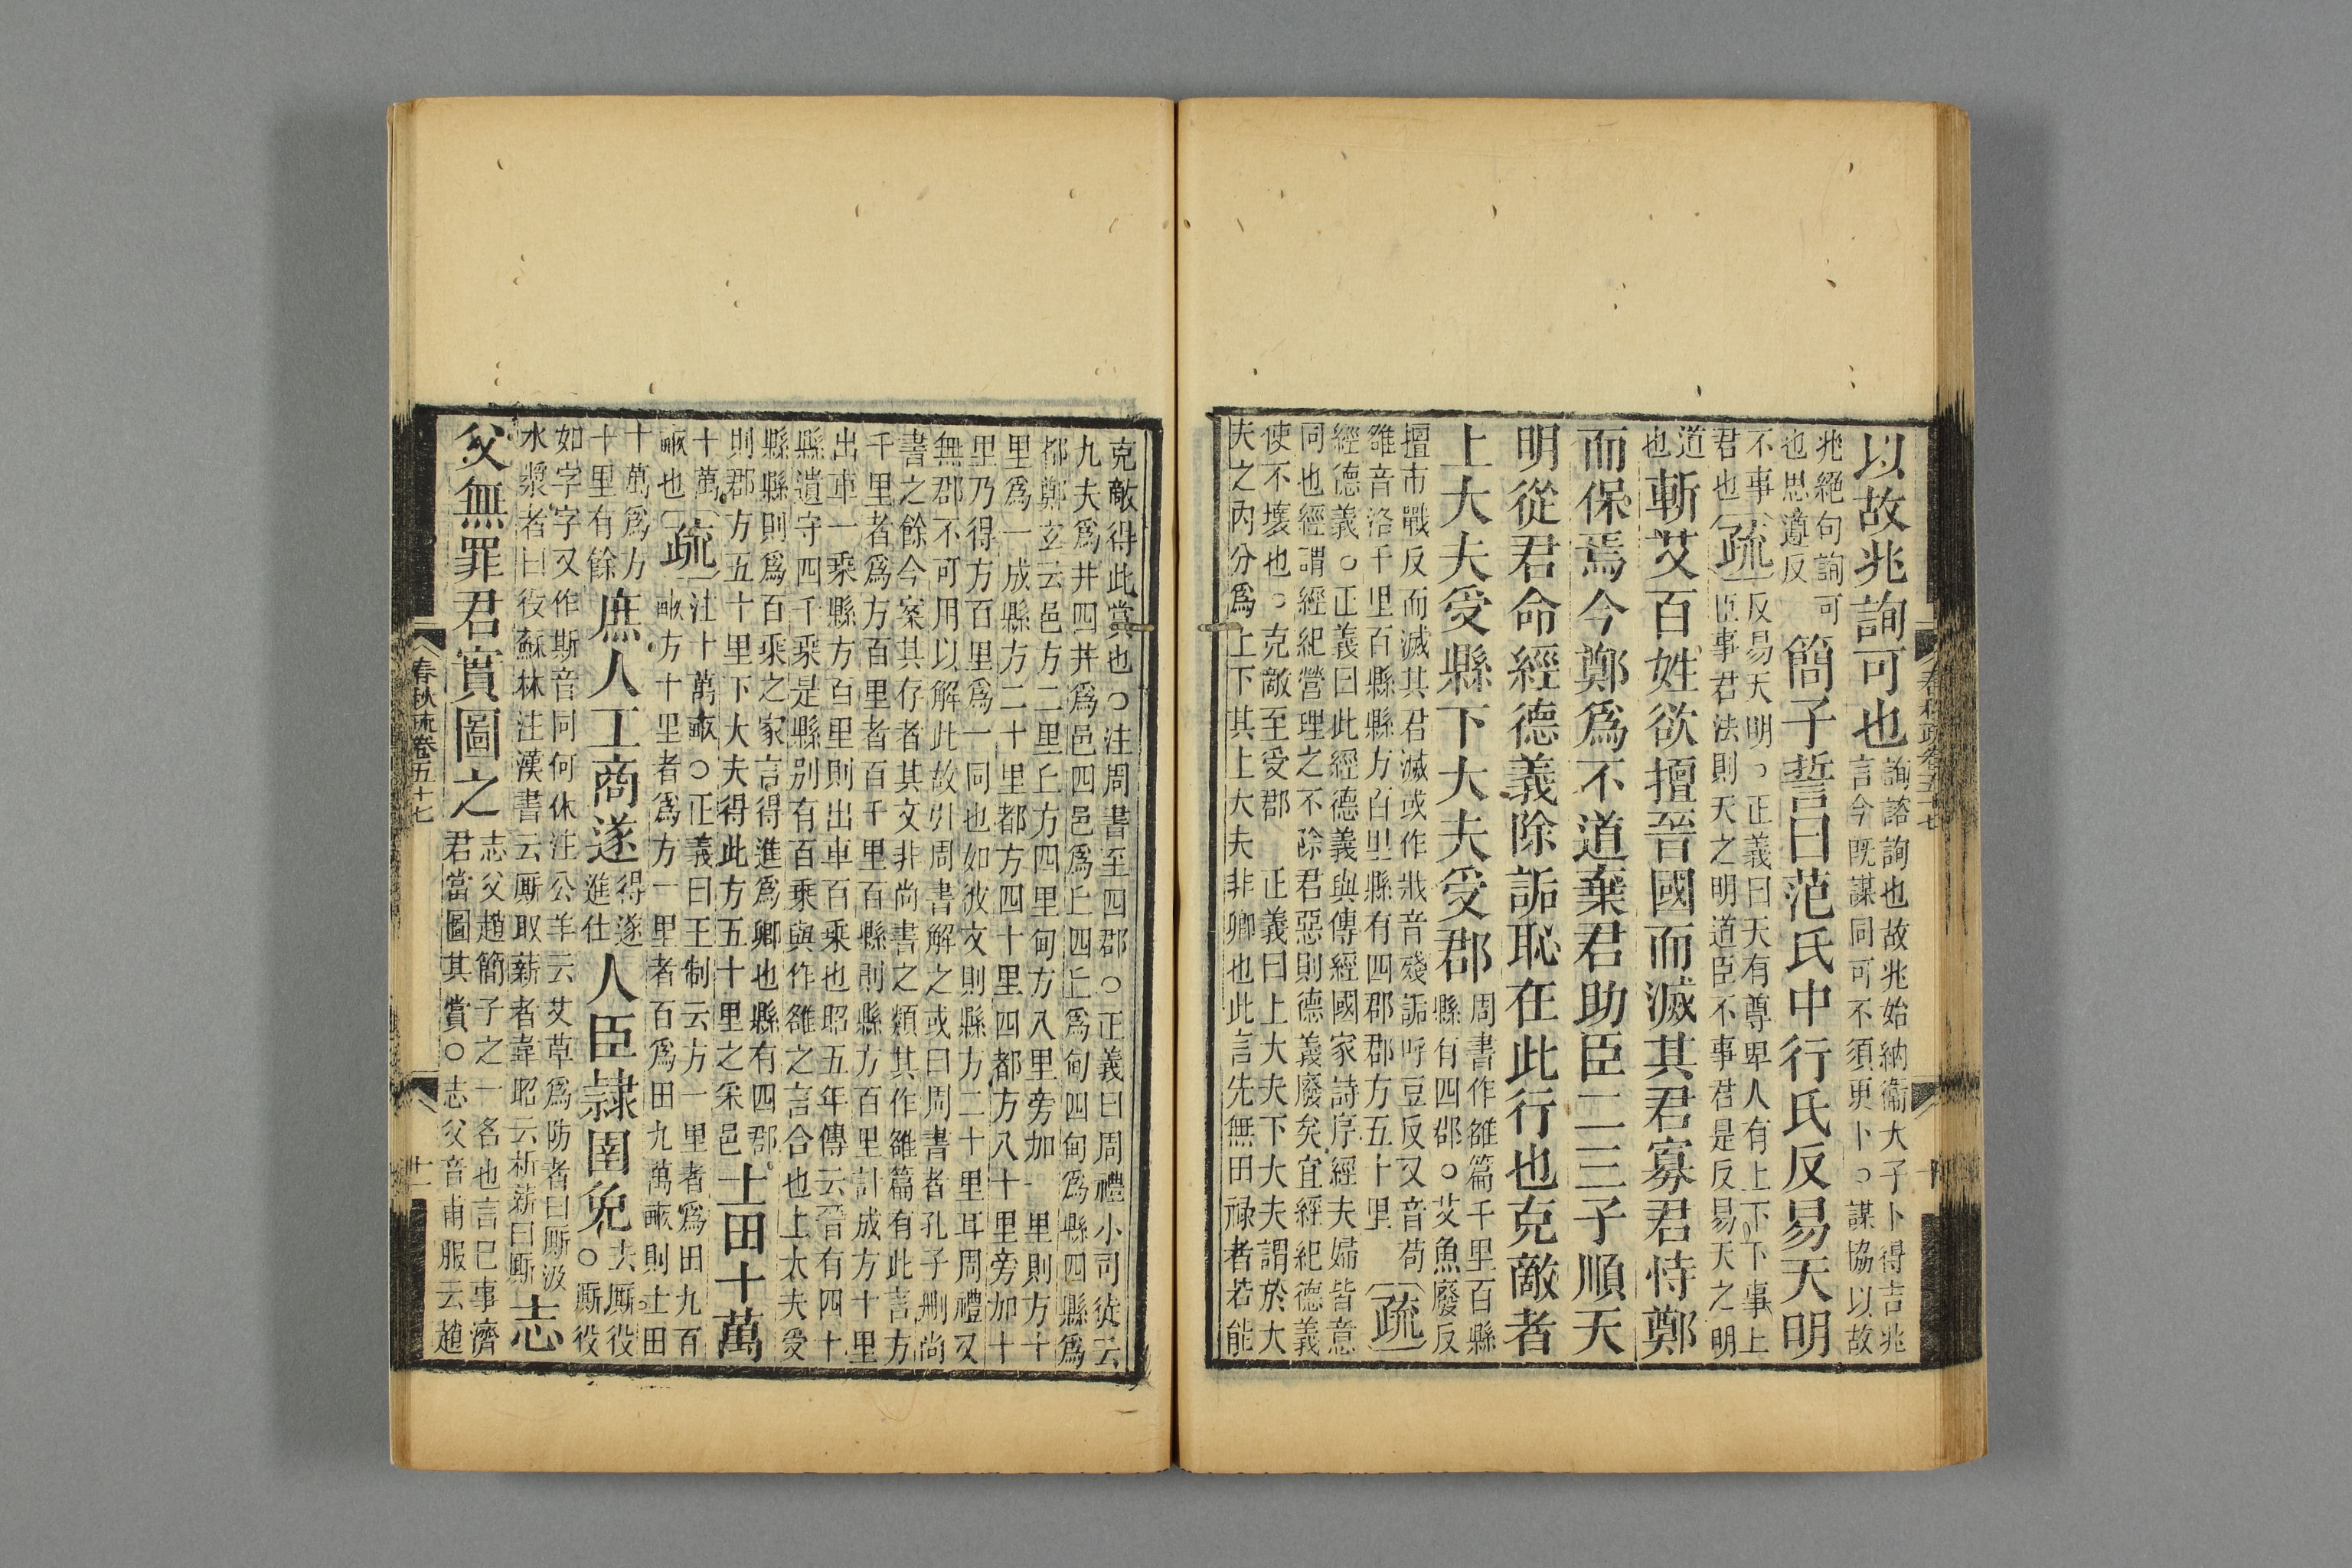 以故兆詢可也 詢諮詢也故兆始納衞大子卜得吉兆
言今既謀同可不須更卜○謀協以故
兆絕句詢可
也思遵反 簡子誓曰范氏中行氏反易天明
不事
君也 疏 反易天明○正義曰天有尊卑人有上下下事上
臣事君法則天之明道臣不事君是反易天之明
道
也 斬艾百姓欲擅晉國而滅其君寡君恃鄭
而保焉今鄭爲不道棄君助臣二三子順天
明從君命經德義除詬恥在此行也克敵者
上大夫受縣下大夫受郡 周書作雒篇千里百縣
縣有四郡○艾魚廢反
擅市戰反而滅其君滅或作戕音殘詬呼豆反又音苟
雒音洛千里百縣縣方百里縣有四郡郡方五十里 疏
經德義○正義曰此經德義與傳經國家詩序經夫婦皆意
同也經謂經紀營理之不除君惡則德義廢矣宜經紀德義
使不壞也○克敵至受郡 正義曰上大夫下大夫謂於大
夫之內分爲上下其上大夫非卿也此言先無田祿者若能
春秋疏卷五十七 十
克敵得此賞也○注周書至四郡○正義曰周禮小司徒云
九夫爲井四井爲邑四邑爲丘四丘爲甸四甸爲縣四縣爲
都鄭玄云邑方二里丘方四里甸方八里旁加一里則方十
里爲一成縣方二十里都方四十里四都方八十里旁加十
里乃得方百里爲一同也如彼文則縣方二十里耳周禮又
無郡不可用以解此故引周書解之或曰周書者孔子刪尚
書之餘今案其存者其文非尚書之類其作雒篇有此言方
千里者爲方百里者百千里百縣則縣方百里計成方十里
出車一乘縣方百里則出車百乘也昭五年傳云晉有四十
縣遺守四千乘是縣别有百乘與作雒之言合也上大夫受
縣縣則爲百乘之家言得進爲卿也縣有四郡
則郡方五十里下大夫得此方五十里之采邑 士田十萬
十萬
畝也 疏 注十萬畝○正義曰王制云方一里者爲田九百
畝方十里者爲方一里者百爲田九萬畝則士田
十萬爲方
十里有餘 庶人工商遂 得遂
進仕 人臣隸圉免 去廝役
○廝役
如字字又作斯音同何休注公羊云艾草爲防者曰廝汲
水漿者曰役蘇林注漢書云廝取薪者韋昭云析薪曰廝 志
父無罪君實圖之 志父趙簡子之一名也言已事濟
君當圖其賞○志父音甫服云趙
春秋疏卷五十七 十一